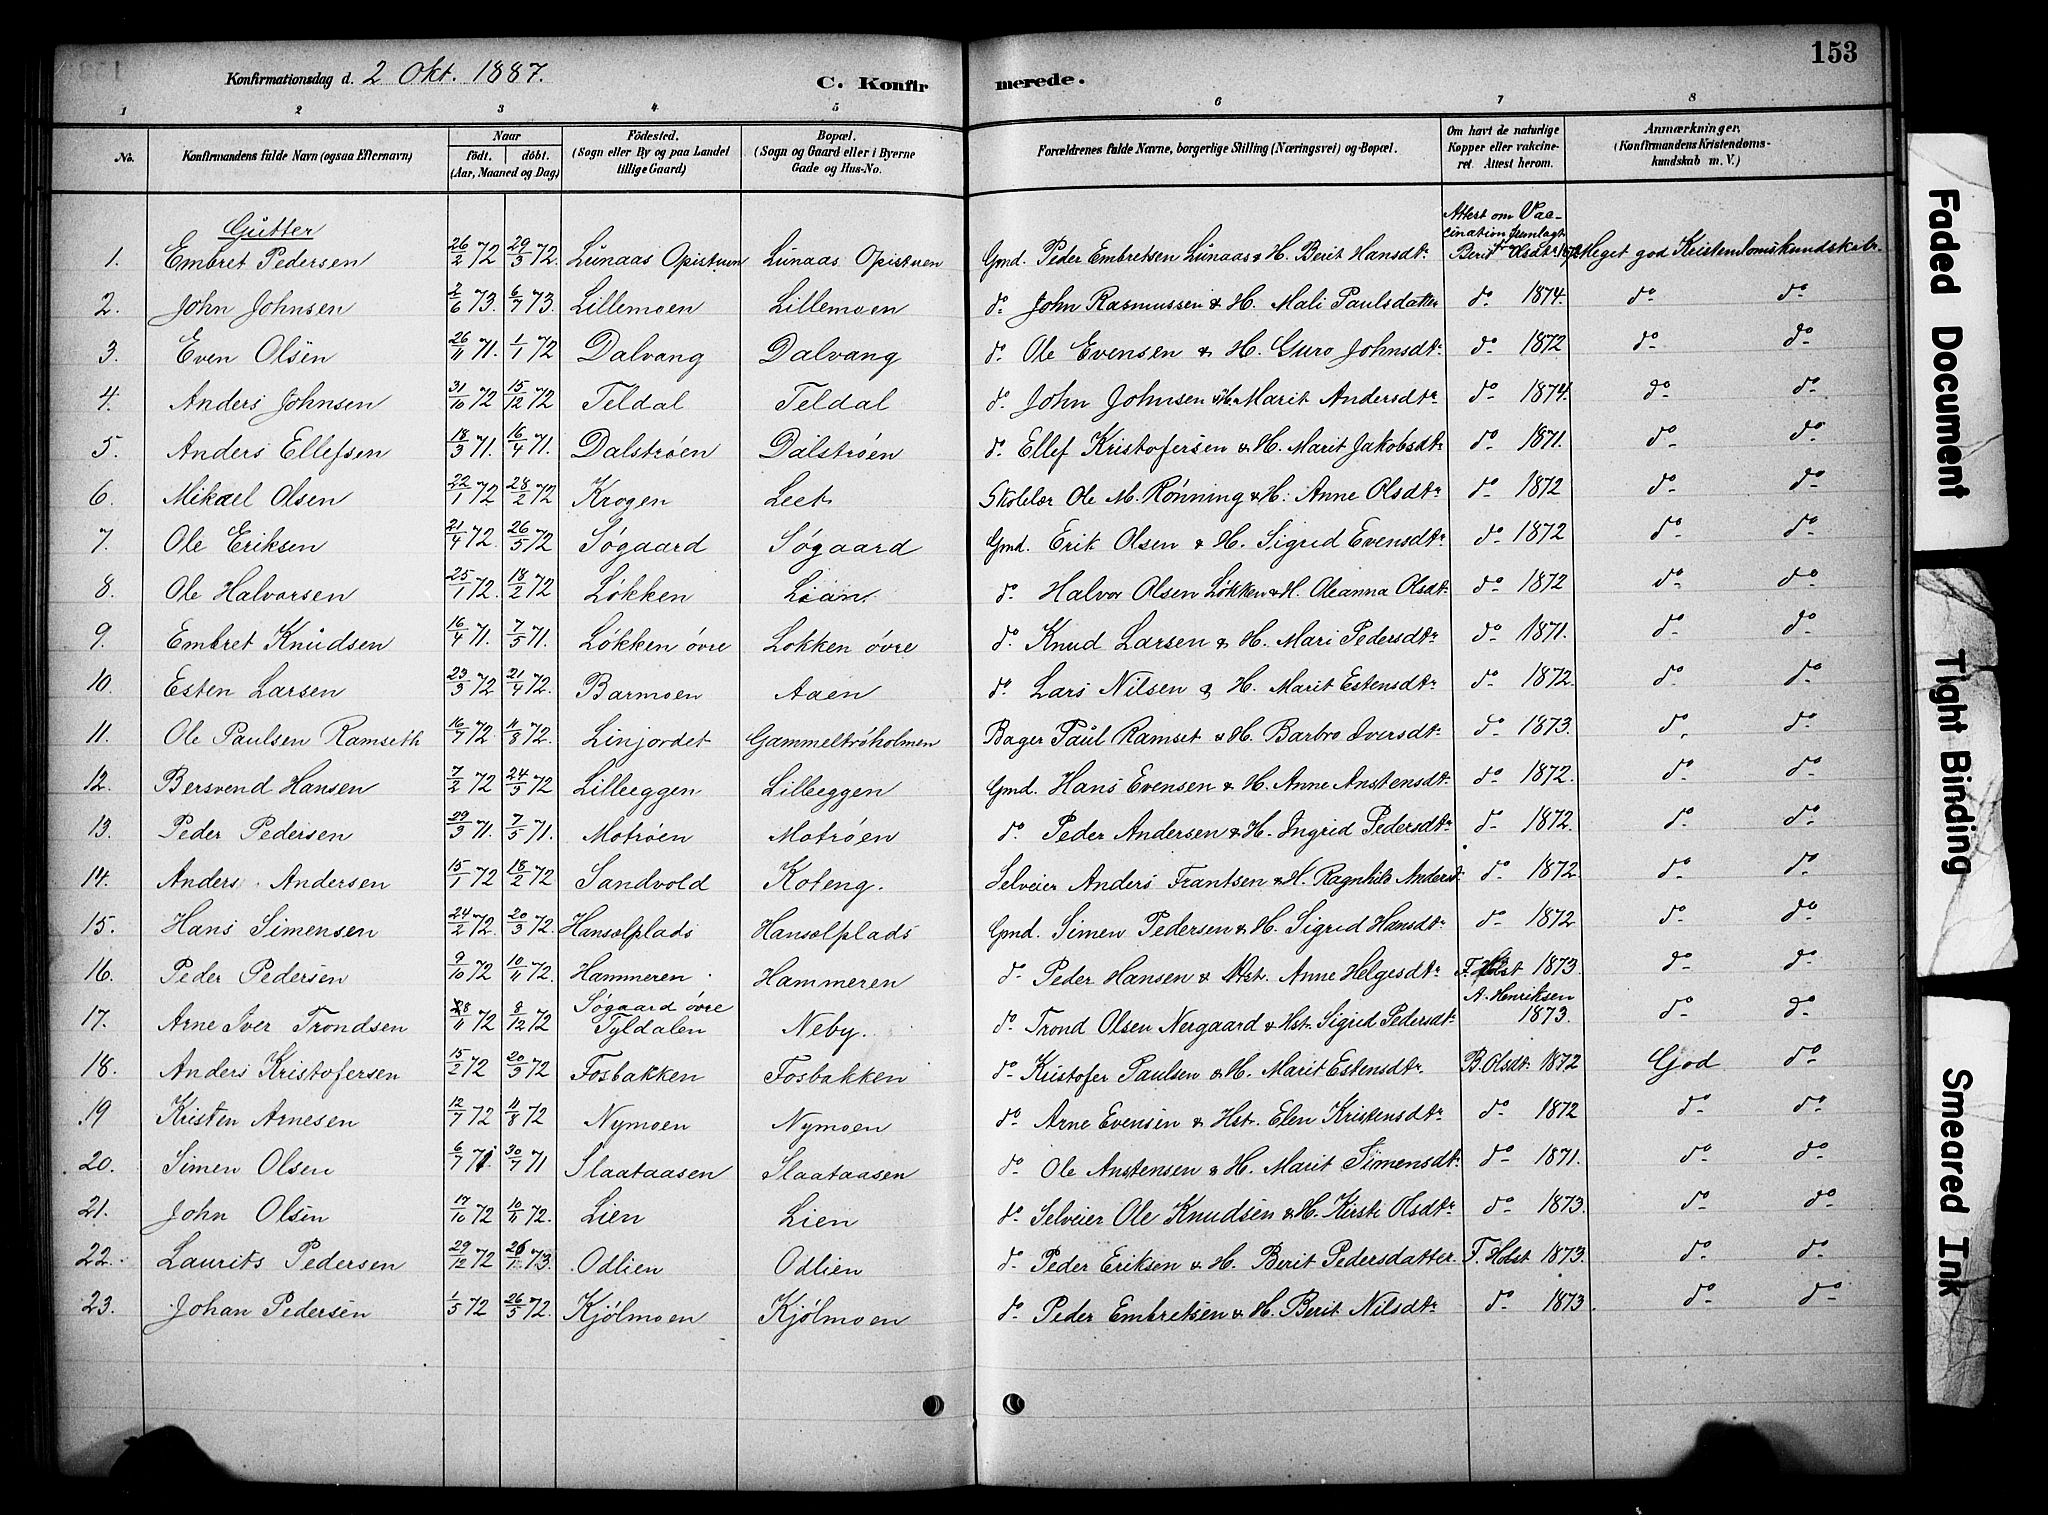 153
Konfirmationsdag d. 2 Okt. 1887.
C. Konfirmerede.
1 2 3 4 5 6 7 8
No. Konfirmandens fulde Navn (ogsaa Efternavn) Naar födt. döbt. (Aar, Maaned og Dag) Födested. (Sogn eller By og paa Landet tillige Gaard) Bopæl. (Sogn og Gaard eller i Byerne Gade og Hus-No. Forældrenes fulde Navne, borgerlige Stilling (Næringsvei) og Bopæl. Om havt de naturlige Kopper eller vakcineret. Attest herom. Anmærkninger. (Konfirmandens Kristendomskundskab m. V.)
Gutter
Attest om Vaccination fremlagt
1. Embret Pedersen 26/2 72 29/3 72. Lunaas Opistuen Lunaas Opistuen Gmd. Peder Embretsen Lunaas & H. Berit Hansdtr Berit Olsdtr 1872 Meget god Kristendomskundskab.
2. John Johnsen 2/6 73. 6/7 73. Lillemoen Lillemoen do John Rasmussen & H. Mali Paulsdatter do 1874. do do
3. Even Olsen 26/11 71. 1/1 72 Dalvang Dalvang do Ole Evensen & H. Guro Johnsdtr do 1872 do do
4. Anders Johnsen 31/10 72 15/12 72 Teldal Teldal do John Johnsen & H. Marit Andersdtr do 1874. do do
5. Anders Ellefsen 18/3 71. 16/4 71. Dalstrøen Dalstrøen do Ellef Kristofersen & H. Marit Jakobsdtr do 1871. do do
6. Mikael Olsen 22/1 72. 28/2 72 Krogen Leet Skolelær Ole M. Rønning & H. Anne Olsdtr do 1872 do do
7. Ole Eriksen 21/4 72. 26/5 72 Søgaard Søgaard Gmd. Erik Olsen & H. Sigrid Evensdtr do 1872 do do
8. Ole Halvorsen 25/1 72. 18/2 72 Løkken Lian do Halvor Olsen Løkken & H. Oleanna Olsdtr do 1872 do do
9. Embret Knudsen 16/4 71. 7/5 71. Løkken øvre Løkken øvre do Knud Larsen & H. Mari Pedersdtr do 1871. do do
10. Esten Larsen 23/3 72 21/4 72. Barmoen Aaen do Lars Nilsen & H. Marit Estensdtr do 1872. do do
11. Ole Paulsen Ramseth 16/7 72. 11/8 72. Linjordet Gammeltrøholmen Bager Paul Ramset & H. Barbro Iversdtr do 1873. do do
12. Bersvend Hansen 7/2 72 24/3 72 Lilleeggen Lilleeggen Gmd. Hans Evensen & H. Anne Anstensdtr do 1872. do do
13. Peder Pedersen 29/3 71. 7/5 71. Motrøen Motrøen do Peder Andersen & H. Ingrid Pedersdtr do 1872. do do
14. Anders Andersen 15/1 72 18/2 72 Sandvold Koteng. Selveier Anders Frantsen & H. Ragnhild Andersdt. do 1872 do do
15. Hans Simensen 24/2 72. 20/3 72. Hansolplads Hansolplads Gmd. Simen Pedersen & H. Sigrid Hansdtr do 1872 do do
16. Peder Pedersen 9/10 72 10/11 72. Hammeren Hammeren do Peder Hansen & Hst. Anne Helgesdtr F. Holst 1873. do do
17. Arne Iver Trondsen 28/11 72 8/12 72 Søgaard øvre Tyldalen Neby. do Trond Olsen Nergaard & Hst. Sigrid Pedersdtr A. Henriksen 1873. do do
18. Anders Kristofersen 15/2 72 20/3 72 Fosbakken Fosbakken do Kristofer Paulsen & H. Marit Estensdtr. B. Olsdtr 1872 God do
19 Kristen Arnesen 12/7 72 11/8 72 Nymoen Nymoen do Arne Evensen & Hst. Elen Kristensdtr do 1872 do do
20. Simen Olsen 6/7 71 30/7 71 Slaataasen Slaataasen do Ole Anstensen & H. Marit Simensdtr do 1871. do do
21. John Olsen 17/10 72 10/11 72. Lien Lien do Selveier Ole Knudsen & H. Kirsti Olsdtr do 1873. do do
22. Laurits Pedersen 29/12 72 26/1 73. Odlien Odlien do Peder Eriksen & H. Berit Pedersdatter. F. Holst 1873. do do
23. Johan Pedersen 1/5 72 26/5 72. Kjølmoen Kjølmoen do Peder Embretsen & H. Berit Nilsdtr do 1873. do do
Faded Document
Tight Binding
Smeared Ink